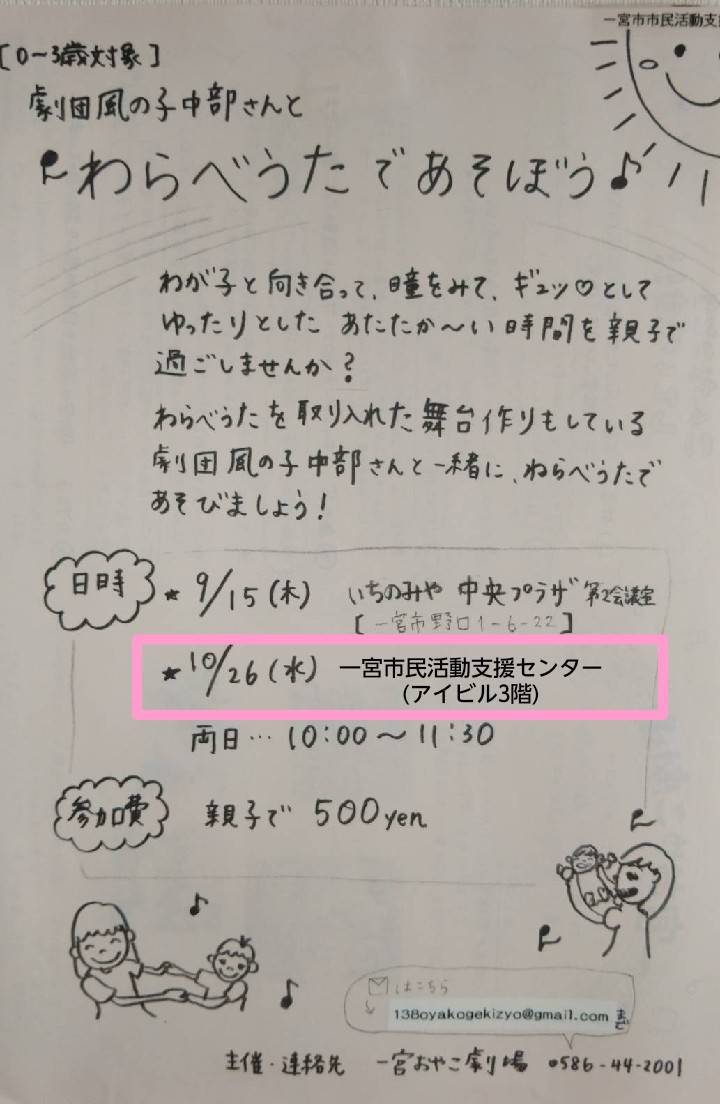 一宮市市民活動支
[0〜3歳対象]
劇団風の子中部さんと
わらべうたであそぼう♪
わが子と向き合って、瞳をみて、ギュッ♡として
ゆったりとした あたたか〜い時間を親子で
過ごしませんか?
わらべうたを取り入れた舞台作りもしている
劇団風の子中部さんと一緒に、わらべうたで
あそびましょう!
日時
★ 9/15(木) いちのみや 中央プラザ 第2会議室
[一宮市野口1-6-22]
★ 10/26(水) 一宮市民活動支援センター
(アイビル3階)
両日… 10:00〜11:30
参加費 親子で 500yen
はこちら
138oyakogekizyo@gmail.com まで
主催・連絡先 一宮おやこ劇場 0586-44-2001